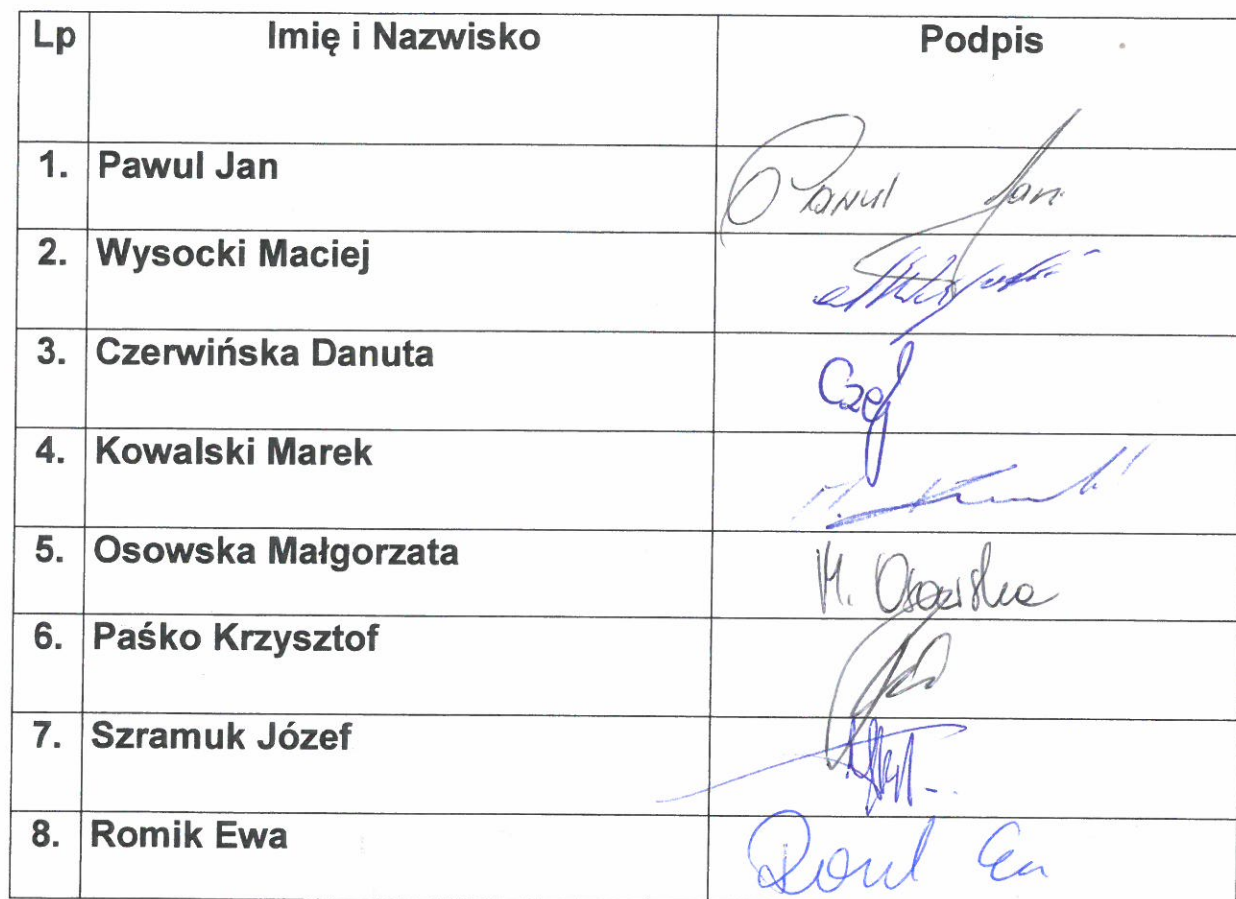 Lp Imię i Nazwisko Podpis
1. Pawul Jan Pawul Jan
2. Wysocki Maciej
3. Czerwińska Danuta
4. Kowalski Marek
5. Osowska Małgorzata M. Osowska
6. Paśko Krzysztof
7. Szramuk Józef
8. Romik Ewa